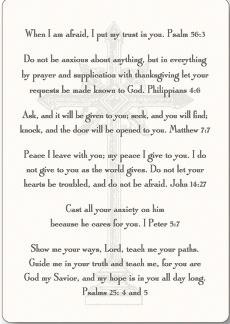 When I am afraid, I put my trust in you. Psalm 56:3
Do not be anxious about anything, but in everything
by prayer and supplication with thanksgiving let your
requests be made known to God. Philippians 4:6
Ask, and it will be given to you; seek, and you will find;
knock, and the door will be opened to you. Matthew 7:7
Peace I leave with you; my peace I give to you. I do
not give to you as the world gives. Do not let your
hearts be troubled, and do not be afraid. John 14:27
Cast all your anxiety on him
because he cares for you. I Peter 5:7
Show me your ways, Lord, teach me your paths.
Guide me in your truth and teach me, for you are
God my Savior, and my hope is in you all day long.
Psalms 25: 4 and 5